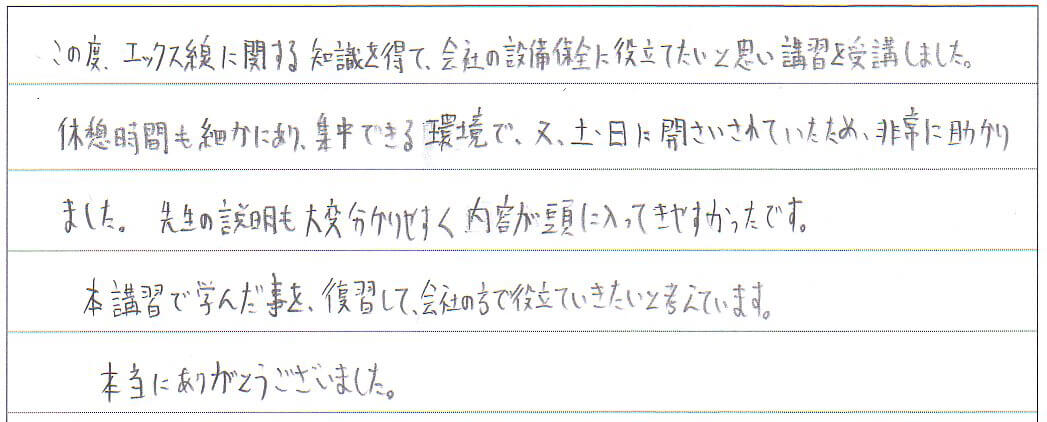 この度、エックス線に関する知識を得て、会社の設備保全に役立てたいと思い講習を受講しました。
休憩時間も細かにあり、集中できる環境で、又、土・日に開さいされていたため、非常に助かり
ました。 先生の説明も大変分かりやすく内容が頭に入ってきやすかったです。
本講習で学んだ事を、復習して、会社の方で役立ていきたいと考えています。
本当にありがとうございました。